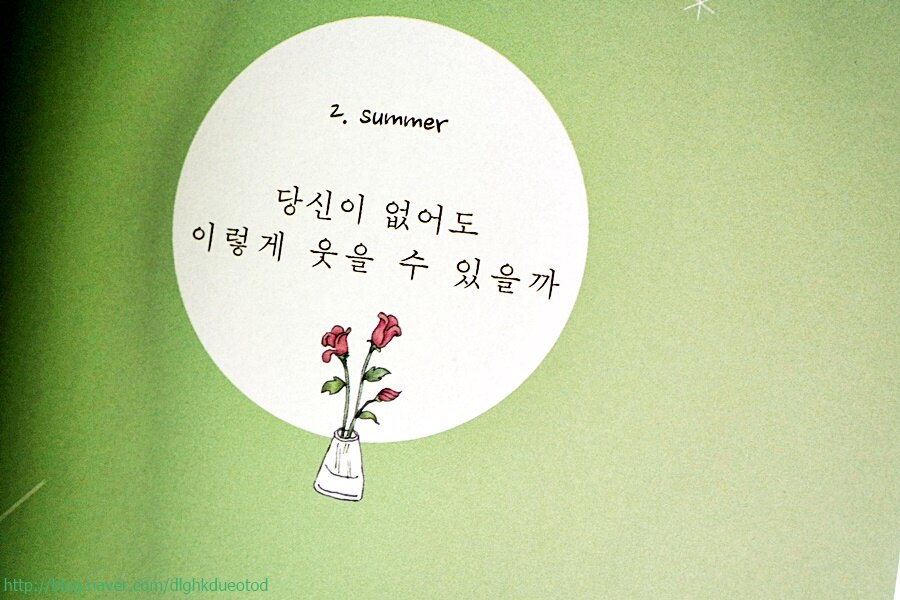 2. summer
당신이 없어도
이렇게 웃을 수 있을까
http://blog.naver.com/dlghkdueotod